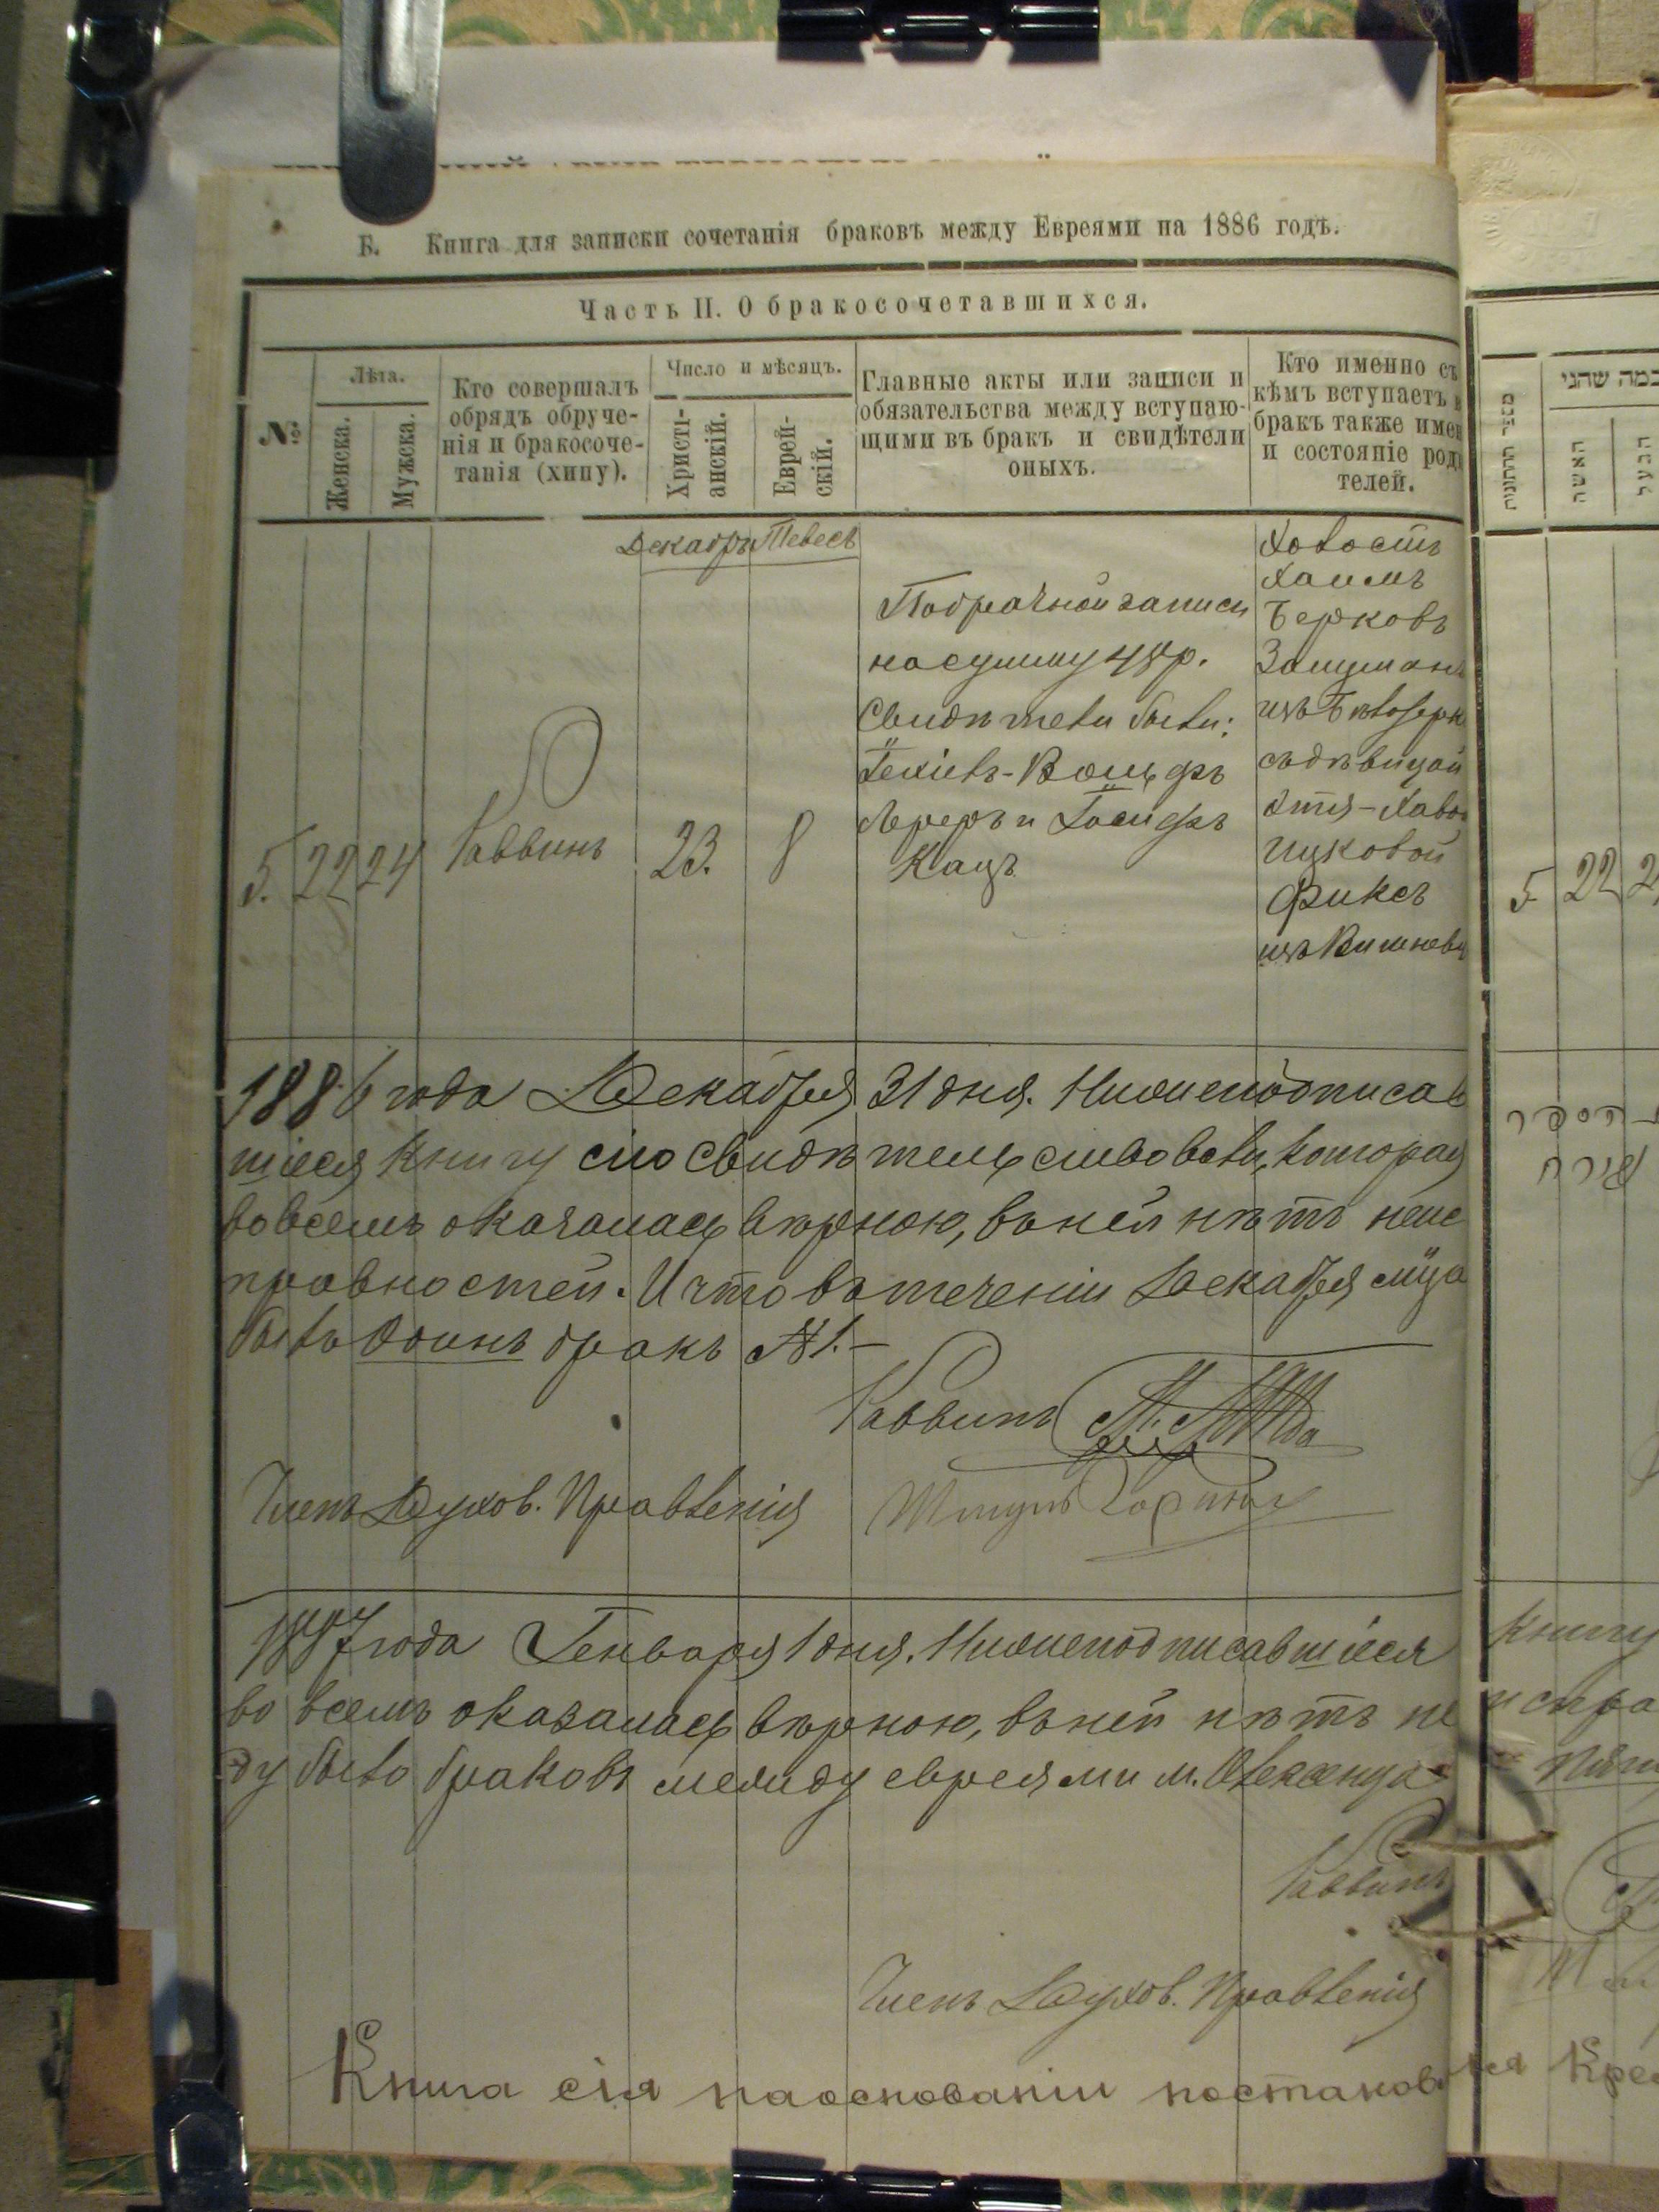 Б. Книга для записки сочетанія браковъ между Евреями на 1886 годъ.
Часть II. О бракосочетавшихся.
№
Лѣта.
Женска.
Мужска.
Кто совершалъ
обрядъ обруче-
нія и бракосоче-
танія (хипу).
Число и мѣсяцъ.
Христі-
анскій.
Еврей-
скій.
Главные акты или записи и
обязательства между вступаю-
щими въ бракъ и свидѣтели
оныхъ.
Кто именно съ
кѣмъ вступаетъ в
бракъ также имен
и состояніе род
телей.
Декабрь Тевесъ
5. 22 24 Раввинъ 23. 8
Побрачной записи
на сумму 48 р.
Свидѣтели были:
Іехіель-Вольфъ
Лереръ и Іосифъ
Кацъ
Холостъ
Хаимъ
Берковъ
изъ Бѣлозерк
съ дѣвицой
Ицковой
Фиксъ
изъ Вишнев
1886 года Декабря 31 дня. Нижеподписав
шіеся книгу сію свидѣтельствовали, которая
во всемъ оказалась вѣрною, въ ней нѣтъ неис
правностей. И что въ теченіи Декабря мца
было Одинъ бракъ № 1.—
Раввинъ
Членъ Духов. Правленія
1887 года Генваря 1 дня. Нижеподписавшіеся
во всемъ оказалась вѣрною, въ ней нѣтъ не
ду было браковъ между евреями м. Олексенца
Раввинъ
Членъ Духов. Правленія
Книга сія на основаніи постанов
כמה שהני
האשה
הבעל
5 22 2
книгу
испра